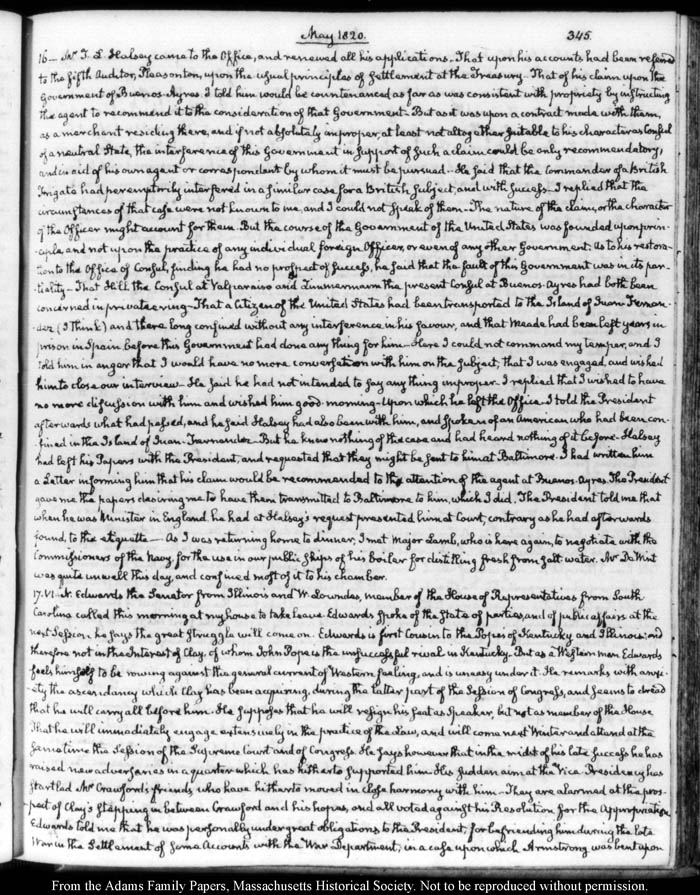 May 1820.
345.
16 — Mr T. L. Halsey came to the Office, and renewed all his applications. That upon his accounts had been referred
to the fifth Auditor, Pleasonton, upon the usual principles of Settlement at the Treasury — That of his claim upon the
Government of Buenos-Ayres I told him would be countenanced as far as was consistent with propriety by instructing
the agent to recommend it to the consideration of that Government — But as it was upon a contract made with them,
as a merchant residing there, and if not absolutely improper, at least not altogether suitable to his character as Consul
of a neutral State, the interference of this Government in support of such a claim could be only recommendatory,
and in aid of his own agent or correspondent by whom it must be pursued — He said that the Commander of a British
Frigate had peremptorily interfered in a similar case for a British subject, and with success. I replied that the
circumstances of that case were not known to me, and I could not speak of them — The nature of the claim, or the character
of the Officer might account for them. But the course of the Government of the United States was founded upon prin-
ciple and not upon the practice of any individual foreign Officer, or even of any other Government. As to his restora-
tion to the Office of Consul, finding he had no prospect of success, he said that the fault of this Government was in its par-
tiality — That Hill the Consul at Valparaiso and Zimmermann the present Consul at Buenos-Ayres had both been
concerned in privateering — That a Citizen of the United States had been transported to the Island of Juan Fernan-
dez (I think) and there long confined without any interference in his favour, and that Meade had been left years in
prison in Spain before this Government had done any thing for him — Here I could not command my temper, and I
told him in anger that I would have no more conversation with him on the subject, that I was engaged, and wished
him to close our interview — He said he had not intended to say any thing improper. I replied that I wished to have
no more discussion with him and wished him good-morning — Upon which he left the Office. I told the President
afterwards what had passed, and he said Halsey had also been with him, and spoken of an American who had been con-
fined in the Island of Juan-Fernandez. But he knew nothing of the case and had heard nothing of it before. Halsey
had left his Papers with the President, and requested that they might be sent to him at Baltimore. I had written him
a Letter informing him that his claim would be recommended to the attention of the agent at Buenos-Ayres. The President
gave me the papers desiring me to have them transmitted to Baltimore to him, which I did. The President told me that
when he was Minister in England he had at Halsey's request presented him at Court, contrary as he had afterwards
found, to the etiquette — As I was returning home to dinner, I met Major Lamb, who is here again, to negotiate with the
Commissioners of the Navy, for the use in our public Ships of his boiler for distilling fresh from salt water. Mr De Wint
was quite unwell this day, and confined most of it to his chamber.
17. VI. N. Edwards the Senator from Illinois and W. Lowndes, member of the House of Representatives from South
Carolina called this morning at my house to take leave. Edwards spoke of the state of parties, and of public affairs at the
next Session. he says the great struggle will come on. Edwards is first Cousin to the Popes of Kentucky and Illinois; and
therefore not in the Interest of Clay, of whom John Pope is the unsuccessful rival in Kentucky. But as a Western man Edwards
feels himself to be rowing against the general current of Western feeling, and is uneasy under it. He remarks with anxi-
ety the ascendancy which Clay has been acquiring, during the latter part of the Session of Congress, and seems to dread
that he will carry all before him. He supposes that he will resign his seat as Speaker, but not as member of the House
That he will immediately engage extensively in the practice of the Law, and will come next Winter and attend at the
same time the Session of the Supreme Court and of Congress. He says however that in the midst of his late success he has
raised new adversaries in a quarter which has hitherto supported him. His sudden aim at the Vice-Presidency has
startled Mr Crawford's friends, who have hitherto moved in close harmony with him — They are alarmed at the pros-
pect of Clay's stepping in between Crawford and his hopes, and all voted against his Resolution for the Appropriation
Edwards told me that he was personally under great obligations to the President, for befriending him during the late
War in the Settlement of some Accounts with the War Department, in a case upon which Armstrong was bent upon
From the Adams Family Papers, Massachusetts Historical Society. Not to be reproduced without permission.